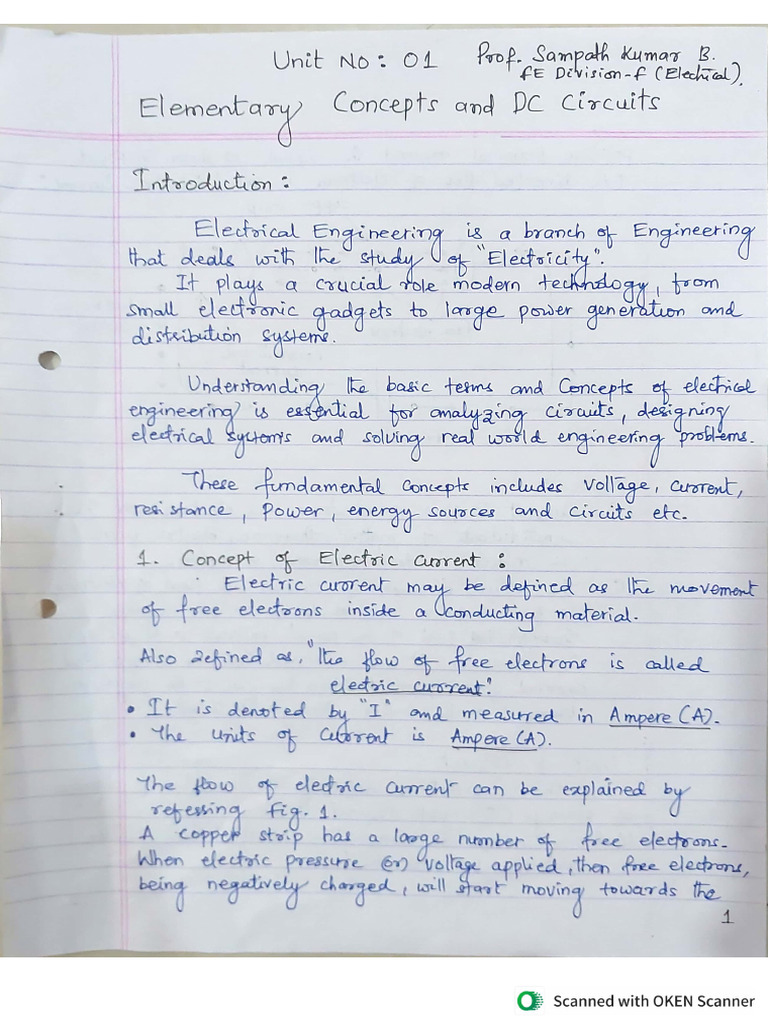 Unit No: 01 Prof. Sampath Kumar B.
FE Division-f (Electical).
Elementary Concepts and DC Circuits
Introduction:
Electrical Engineering is a branch of Engineering
that deals with the study of "Electricity".
It plays a crucial role modern technology, from
small electronic gadgets to large power generation and
distribution systems.
Understanding the basic terms and Concepts of electrical
engineering is essential for analyzing circuits, designing
electrical systems and solving real world engineering problems.
These fundamental concepts includes voltage, current,
resistance, Power, energy sources and circuits etc.
1. Concept of Electric current:
Electric current may be defined as the movement
of free electrons inside a conducting material.
Also defined as, "the flow of free electrons is called
electric current".
• It is denoted by "I" and measured in Ampere (A).
• The units of current is Ampere (A).
The flow of electric current can be explained by
referring fig. 1.
A copper strip has a large number of free electrons.
When electric pressure (or) voltage applied, then free electrons,
being negatively charged, will start moving towards the
1
Scanned with OKEN Scanner